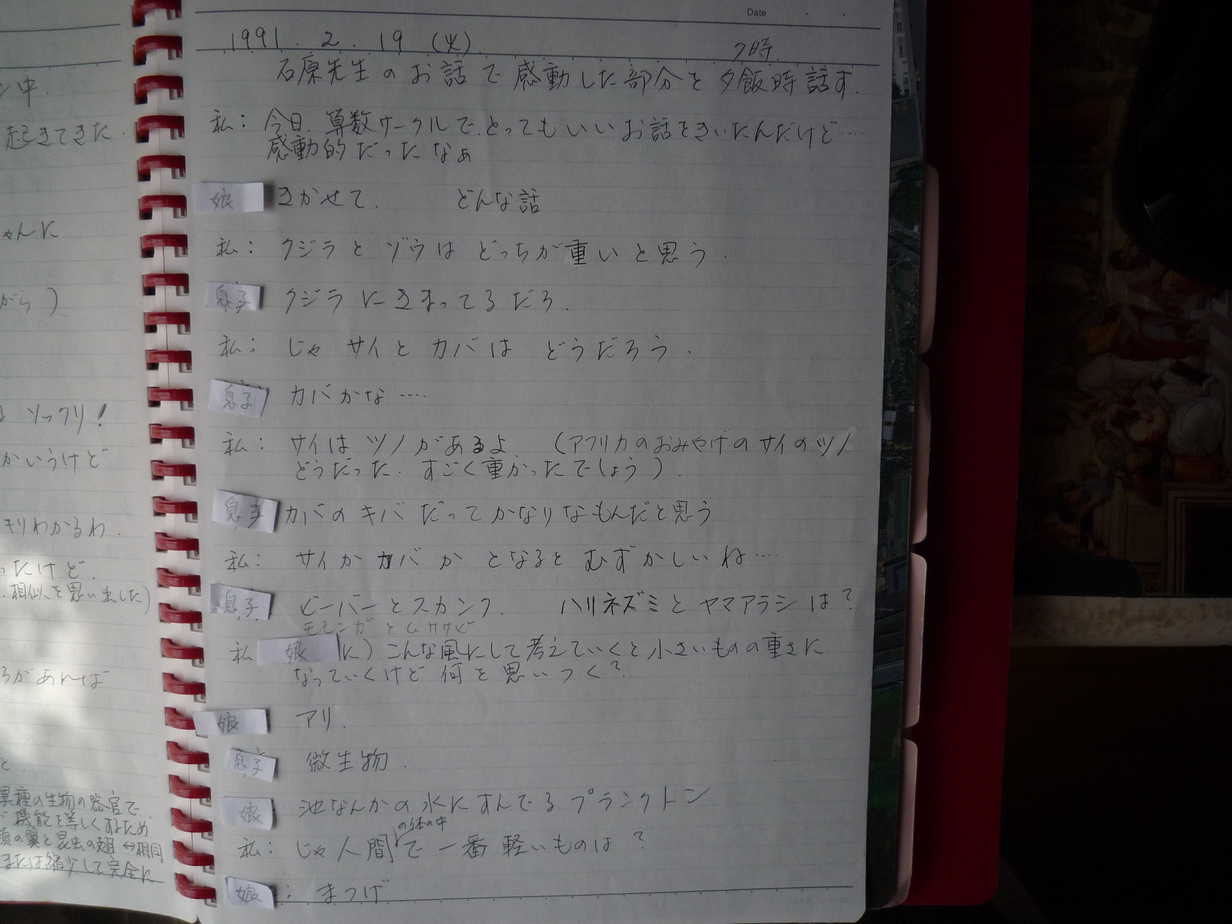 Date
1991.2.19(火) 7時
石原先生のお話で感動した部分を夕飯時話す.
私: 今日、算数サークルで、とってもいいお話をきいたんだけど‥‥
感動的だったなぁ
娘 きかせて. どんな話
私: クジラとゾウはどっちが重いと思う.
息子 クジラにきまってるだろ.
私: じゃサイとカバはどうだろう.
息子 カバかな‥‥
私: サイはツノがあるよ. (アフリカのおみやげのサイのツノ
どうだった. すごく重かったでしょう).
息子 カバのキバだってかなりなもんだと思う
私: サイかカバかとなるとむずかしいね‥‥
息子 ビーバーとスカンク. ハリネズミとヤマアラシは?
モモンガとムササビ
私 娘 に) こんな風にして考えていくと小さいものの重さに
なっていくけど何を思いつく?
娘 アリ.
息子 微生物.
娘 池なんかの水にすんでるプランクトン
私: じゃ人間の体の中で一番軽いものは?
娘: まつげ
ン中.
起きてきた.
ゃんに
がら)
ソックリ!
かいうけど
キリわかるわ.
ったけど.
相似を思い出した)
ろがあれば
と
異種の生物の器官で
機能を等しくするため
の翼と昆虫の翅⇔相同
縮少して完全に